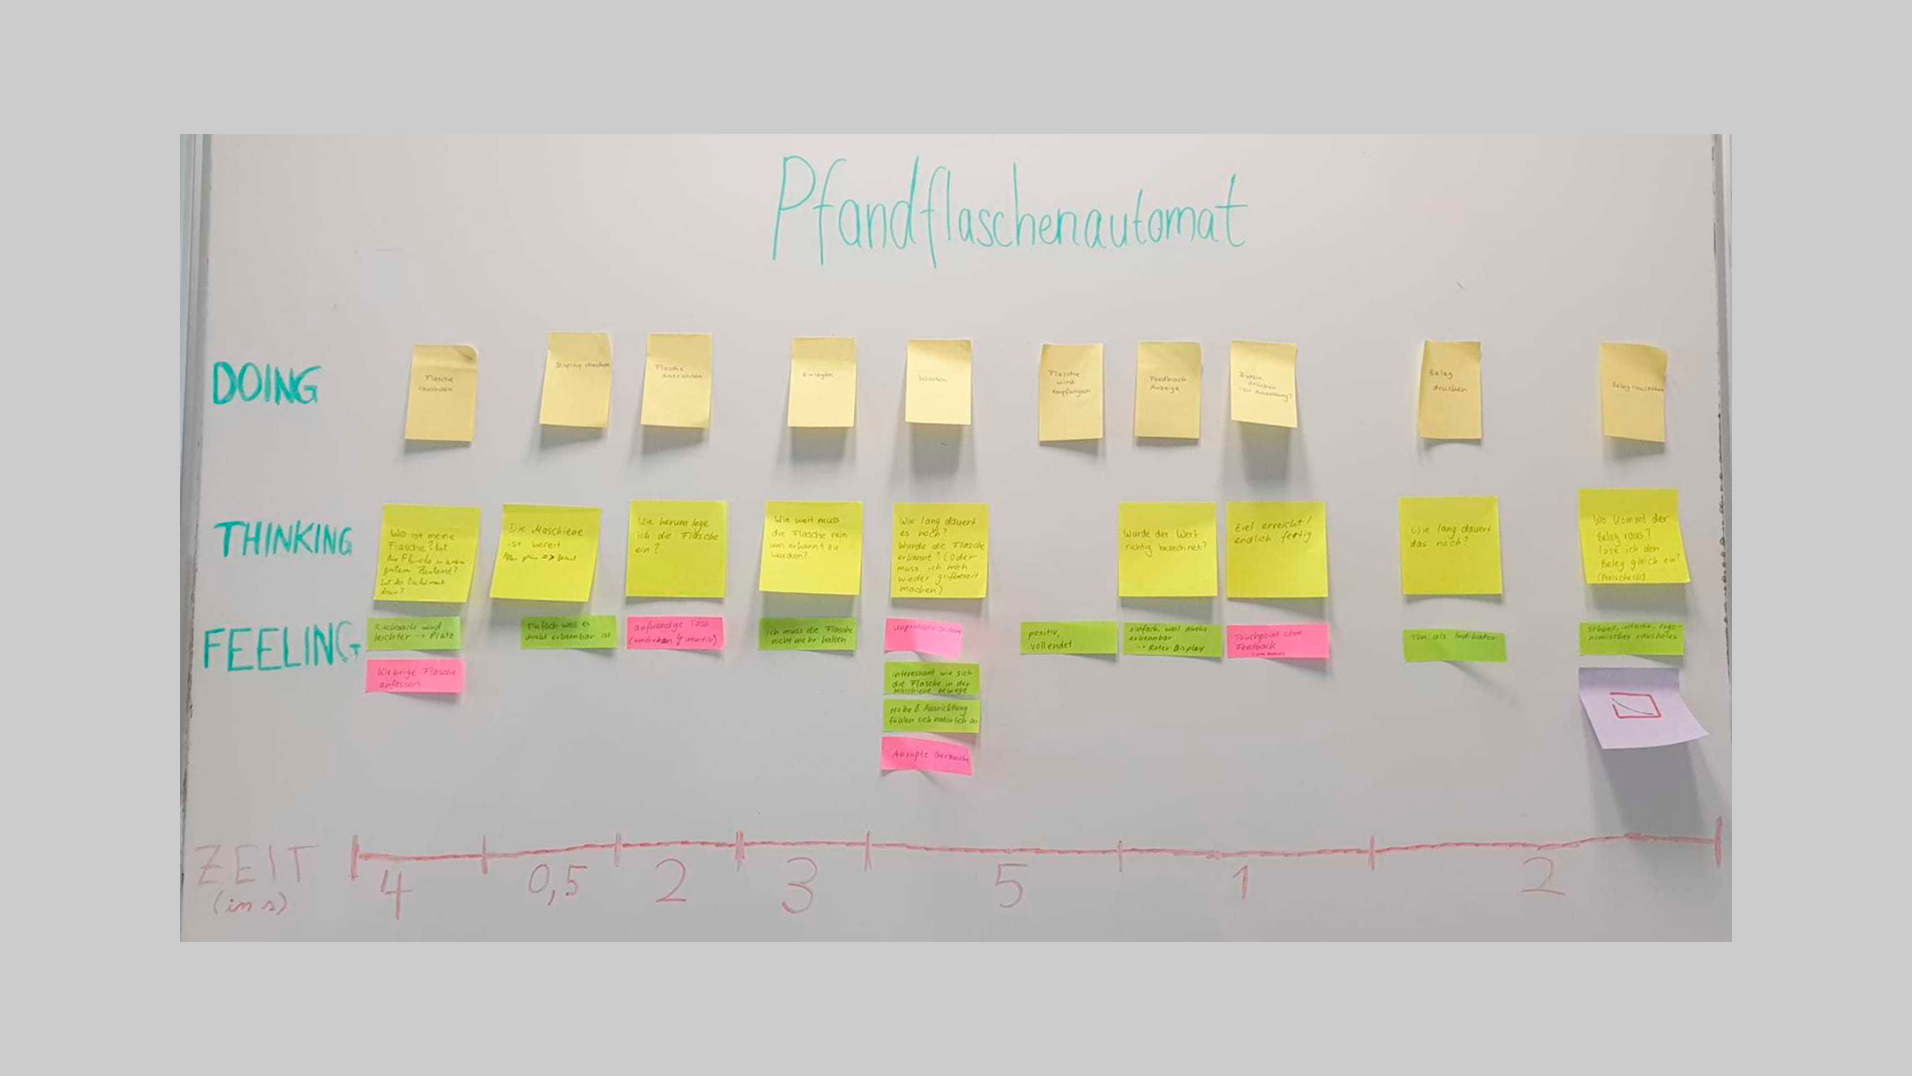 Pfandflaschenautomat
DOING
Flasche
Display checken
Flasche
ausrichten
Einlegen
Warten
Flasche
wird
empfangen
Feedback
Anzeige
drücken
Beleg
drucken
Beleg
THINKING
Wo ist meine
Flasche? Ist
die Flasche in einem
guten Zustand?
Die Maschiene
ist bereit
Wie herum lege
ich die Flasche
ein?
Wie weit muss
die Flasche rein
um erkannt zu
werden?
Wie lang dauert
es noch?
Wurde die Flasche
erkannt? (Oder
muss ich mich
wieder griffbereit
machen)
Wurde der Wert
richtig berechnet?
Ziel erreicht!
endlich fertig
Wie lang dauert
das noch?
Wo kommt der
Beleg raus?
Löse ich den
Beleg gleich ein?
FEELING
Rucksack wird
leichter -> Platz
Klebrige Flasche
anfassen
Einfach weil es
direkt erkennbar ist
aufwendige Task
Ich muss die Flasche
nicht mehr halten
interessant wie sich
die Flasche in der
Maschiene bewegt
Höhe & Ausrichtung
fühlen sich natürlich an
Abrupte Geräusche
positiv,
vollendet
einfach, weil direkt
erkennbar
-> Roter Display
Touchpoint ohne
Feedback
Ton als Indikator
ZEIT
(in s)
4
0,5
2
3
5
1
2